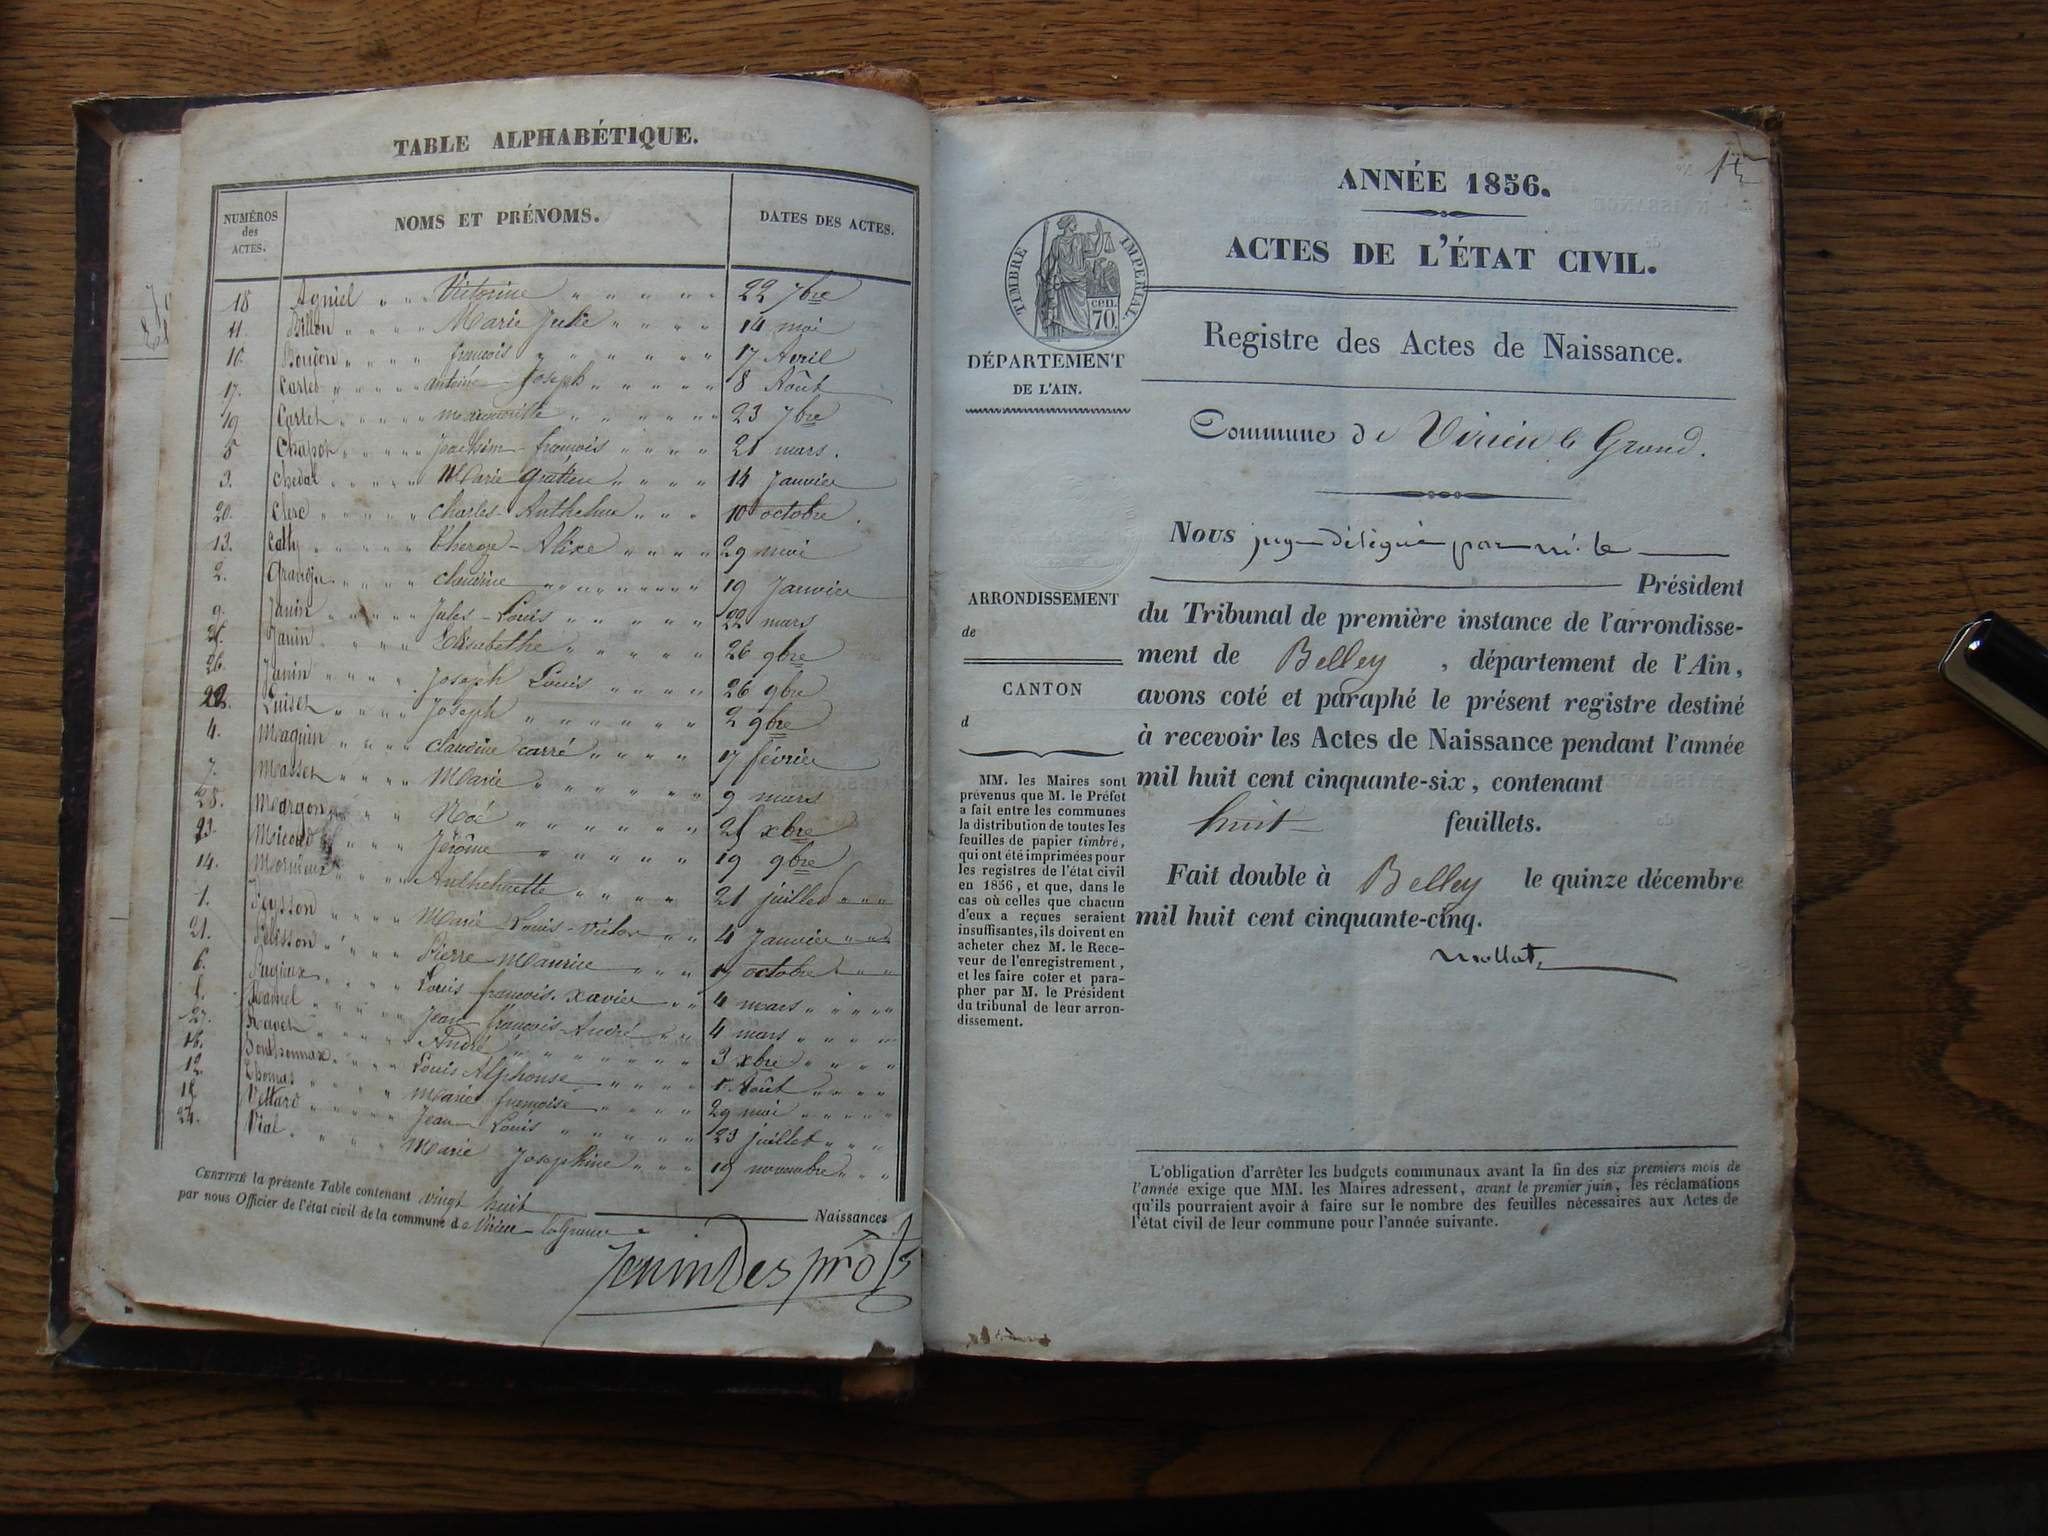 TABLE ALPHABÉTIQUE.
NUMÉROS des ACTES.
NOMS ET PRÉNOMS.
DATES DES ACTES.
18 Agniel Victorine 22 7bre
11. Billon Marie Julie 14 mai
10. françois 17 Avril
17. Cartet antoine Joseph 8 Août
19 Cartet 23 7bre
5 Chapot Joachim françois 21 mars.
3. Chedal Marie 14 Janvier
20. Clerc Charles-Anthelme 10 octobre.
13. Cathy Alixe 29 mai
2. claudine 19 Janvier
9. Janin Jules-Louis 22 mars
Janin Elisabethe 26 9bre
26. Janin Joseph Louis 26 9bre
22. Luiset Joseph 2 9bre
4. Maquin claudine carré 17 février
7. Masset Marie 9 mars
28. Margon Noé xbre
23. Micoud Jérôme 19 9bre
14. Anthelmette 21 juillet
1. Peysson Marie Louis-Victor 4 Janvier
21. Pélisson Pierre Maurice octobre
6. Pugieux Louis françois-Xavier 4 mars
Ramel Jean françois-André 4 mars
27. Ravet André 3 xbre
16. Louis Alphonse Août
12. Thomas Marie françoise 29 mai
Vettard Jean Louis 23 juillet
24. Vial Marie Josephine 19 novembre
CERTIFIÉ la présente Table contenant vingt huit Naissances
par nous Officier de l'état civil de la commune de Virieu-le-Grand
ANNÉE 1856.
ACTES DE L'ÉTAT CIVIL.
TIMBRE IMPÉRIAL.
70. cen.
DÉPARTEMENT
DE L'AIN.
Registre des Actes de Naissance.
Commune de Virieu le Grand.
Nous juge délégué par m. le
Président
du Tribunal de première instance de l'arrondisse-
ment de Belley, département de l'Ain,
avons coté et paraphé le présent registre destiné
à recevoir les Actes de Naissance pendant l'année
mil huit cent cinquante-six, contenant
huit feuillets.
Fait double à Belley le quinze décembre
mil huit cent cinquante-cinq.
Mollat
ARRONDISSEMENT
de
CANTON
d
MM. les Maires sont
prévenus que M. le Préfet
a fait entre les communes
la distribution de toutes les
feuilles de papier timbré,
qui ont été imprimées pour
les registres de l'état civil
en 1856, et que, dans le
cas où celles que chacun
d'eux a reçues seraient
insuffisantes, ils doivent en
acheter chez M. le Rece-
veur de l'enregistrement,
et les faire coter et para-
pher par M. le Président
du tribunal de leur arron-
dissement.
L'obligation d'arrêter les budgets communaux avant la fin des six premiers mois de
l'année exige que MM. les Maires adressent, avant le premier juin, les réclamations
qu'ils pourraient avoir à faire sur le nombre des feuilles nécessaires aux Actes de
l'état civil de leur commune pour l'année suivante.